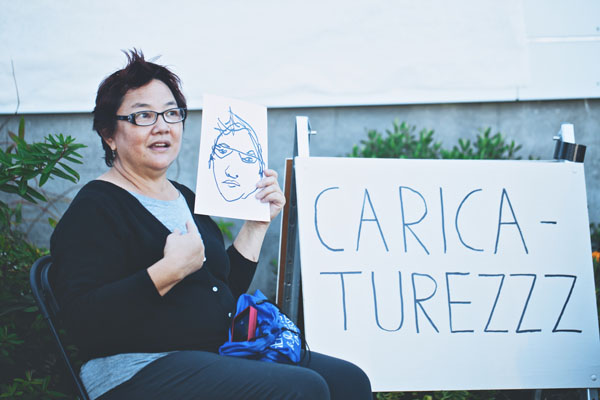 CARICA-
TUREZZZ